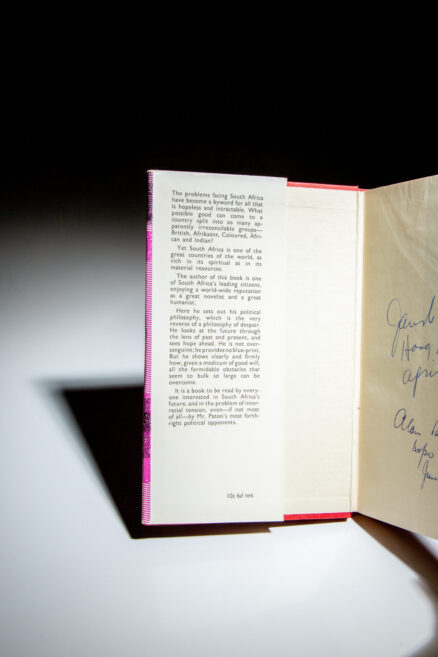 The problems facing South Africa
have become a byword for all that
is hopeless and intractable. What
possible good can come to a
country split into so many ap-
parently irreconcilable groups—
British, Afrikaans, Coloured, Afri-
can and Indian?
Yet South Africa is one of the
great countries of the world, as
rich in its spiritual as in its
material resources.
The author of this book is one
of South Africa's leading citizens,
enjoying a world-wide reputation
as a great novelist and a great
humanist.
Here he sets out his political
philosophy, which is the very
reverse of a philosophy of despair.
He looks at the future through
the lens of past and present, and
sees hope ahead. He is not over-
sanguine; he provides no blue-print.
But he shows clearly and firmly
how, given a modicum of good will,
all the formidable obstacles that
seem to bulk so large can be
overcome.
It is a book to be read by every-
one interested in South Africa's
future, and in the problem of inter-
racial tension, even—if not most
of all—by Mr. Paton's most forth-
right political opponents.
10s 6d net
Hong
Alan